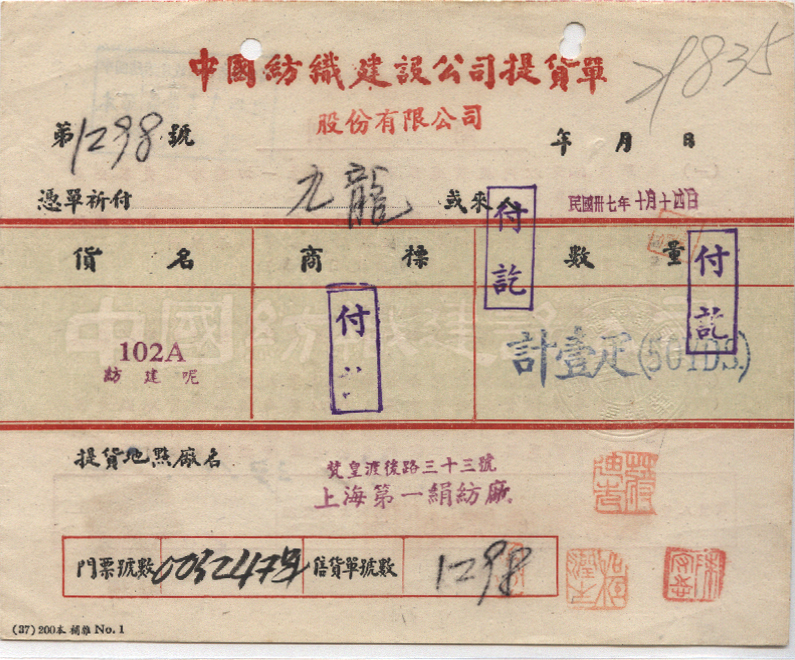 中國紡織建設公司提貨單
29835
股份有限公司
第1298號
年 月 日
憑單祈付 九龍 或來人
民國卅七年十月十四日
付訖
貨名 商標 數量
付訖
付
中國紡織建設公司
102A
紡建呢
計壹疋(50YDS.)
提貨地點廠名
梵皇渡後路三十三號
上海第一絹紡廠
門票號數 003247號 售貨單號數 1298
(37) 200本 補雜 No. 1